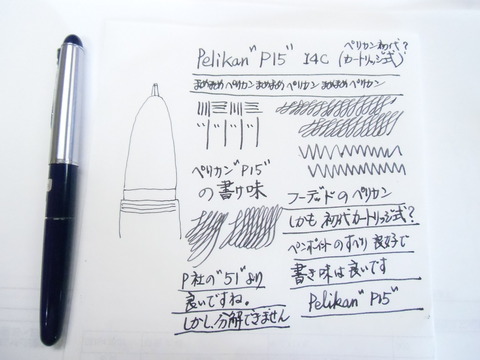 Pelikan "P15" 14C
ペリカン初代?
(カートリッジ式)
まめまめ ペリカン まめまめ ペリカン まめまめ ペリカン
ペリカン "P15"
の書き味
フーデッドのペリカン
しかも初代カートリッジ式?
ペンポイントのすべり良好で
書き味は良いです
Pelikan "P15"
P社の"51"より
良いですね。
しかし、分解できません